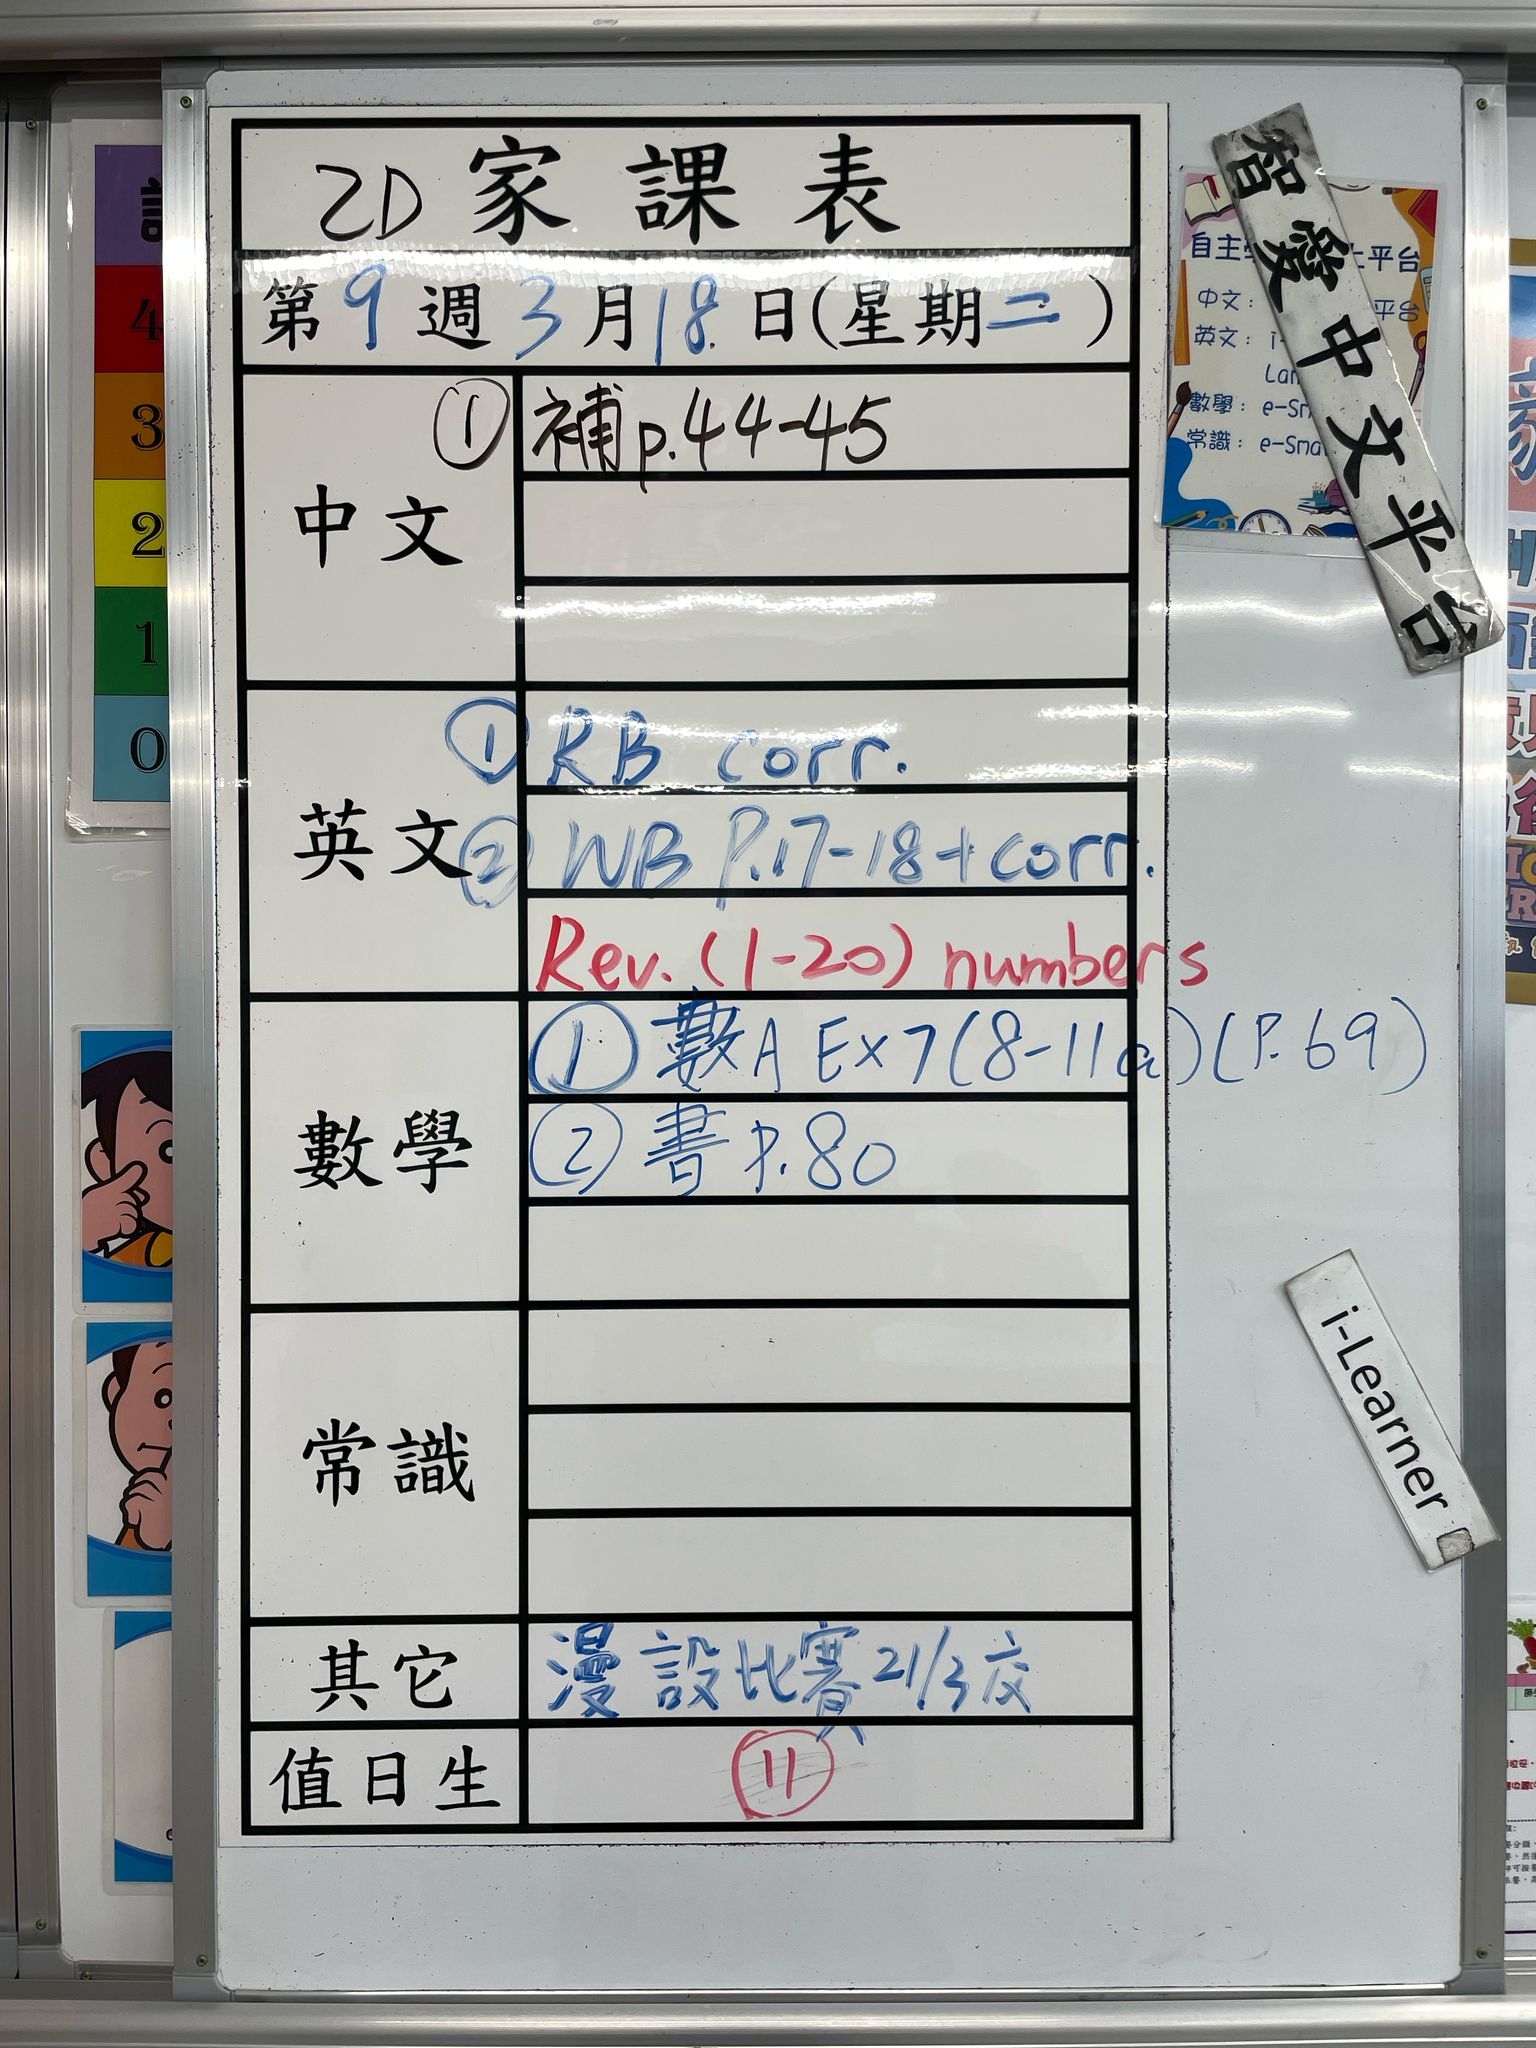 2D 家課表
第9週3月18日(星期二)
中文
① 補p.44-45
英文
① RB corr.
② WB P.17-18+corr.
Rev. (1-20) numbers
數學
① 數A Ex7(8-11a)(P.69)
② 書 P.80
常識
其它
漫設比賽21/3交
值日生
11
智愛中文平台
自主
上平台
中文：
平台
英文： i-
Lan
數學： e-Sm
常識： e-Sma
i-Learner
4
3
2
1
0